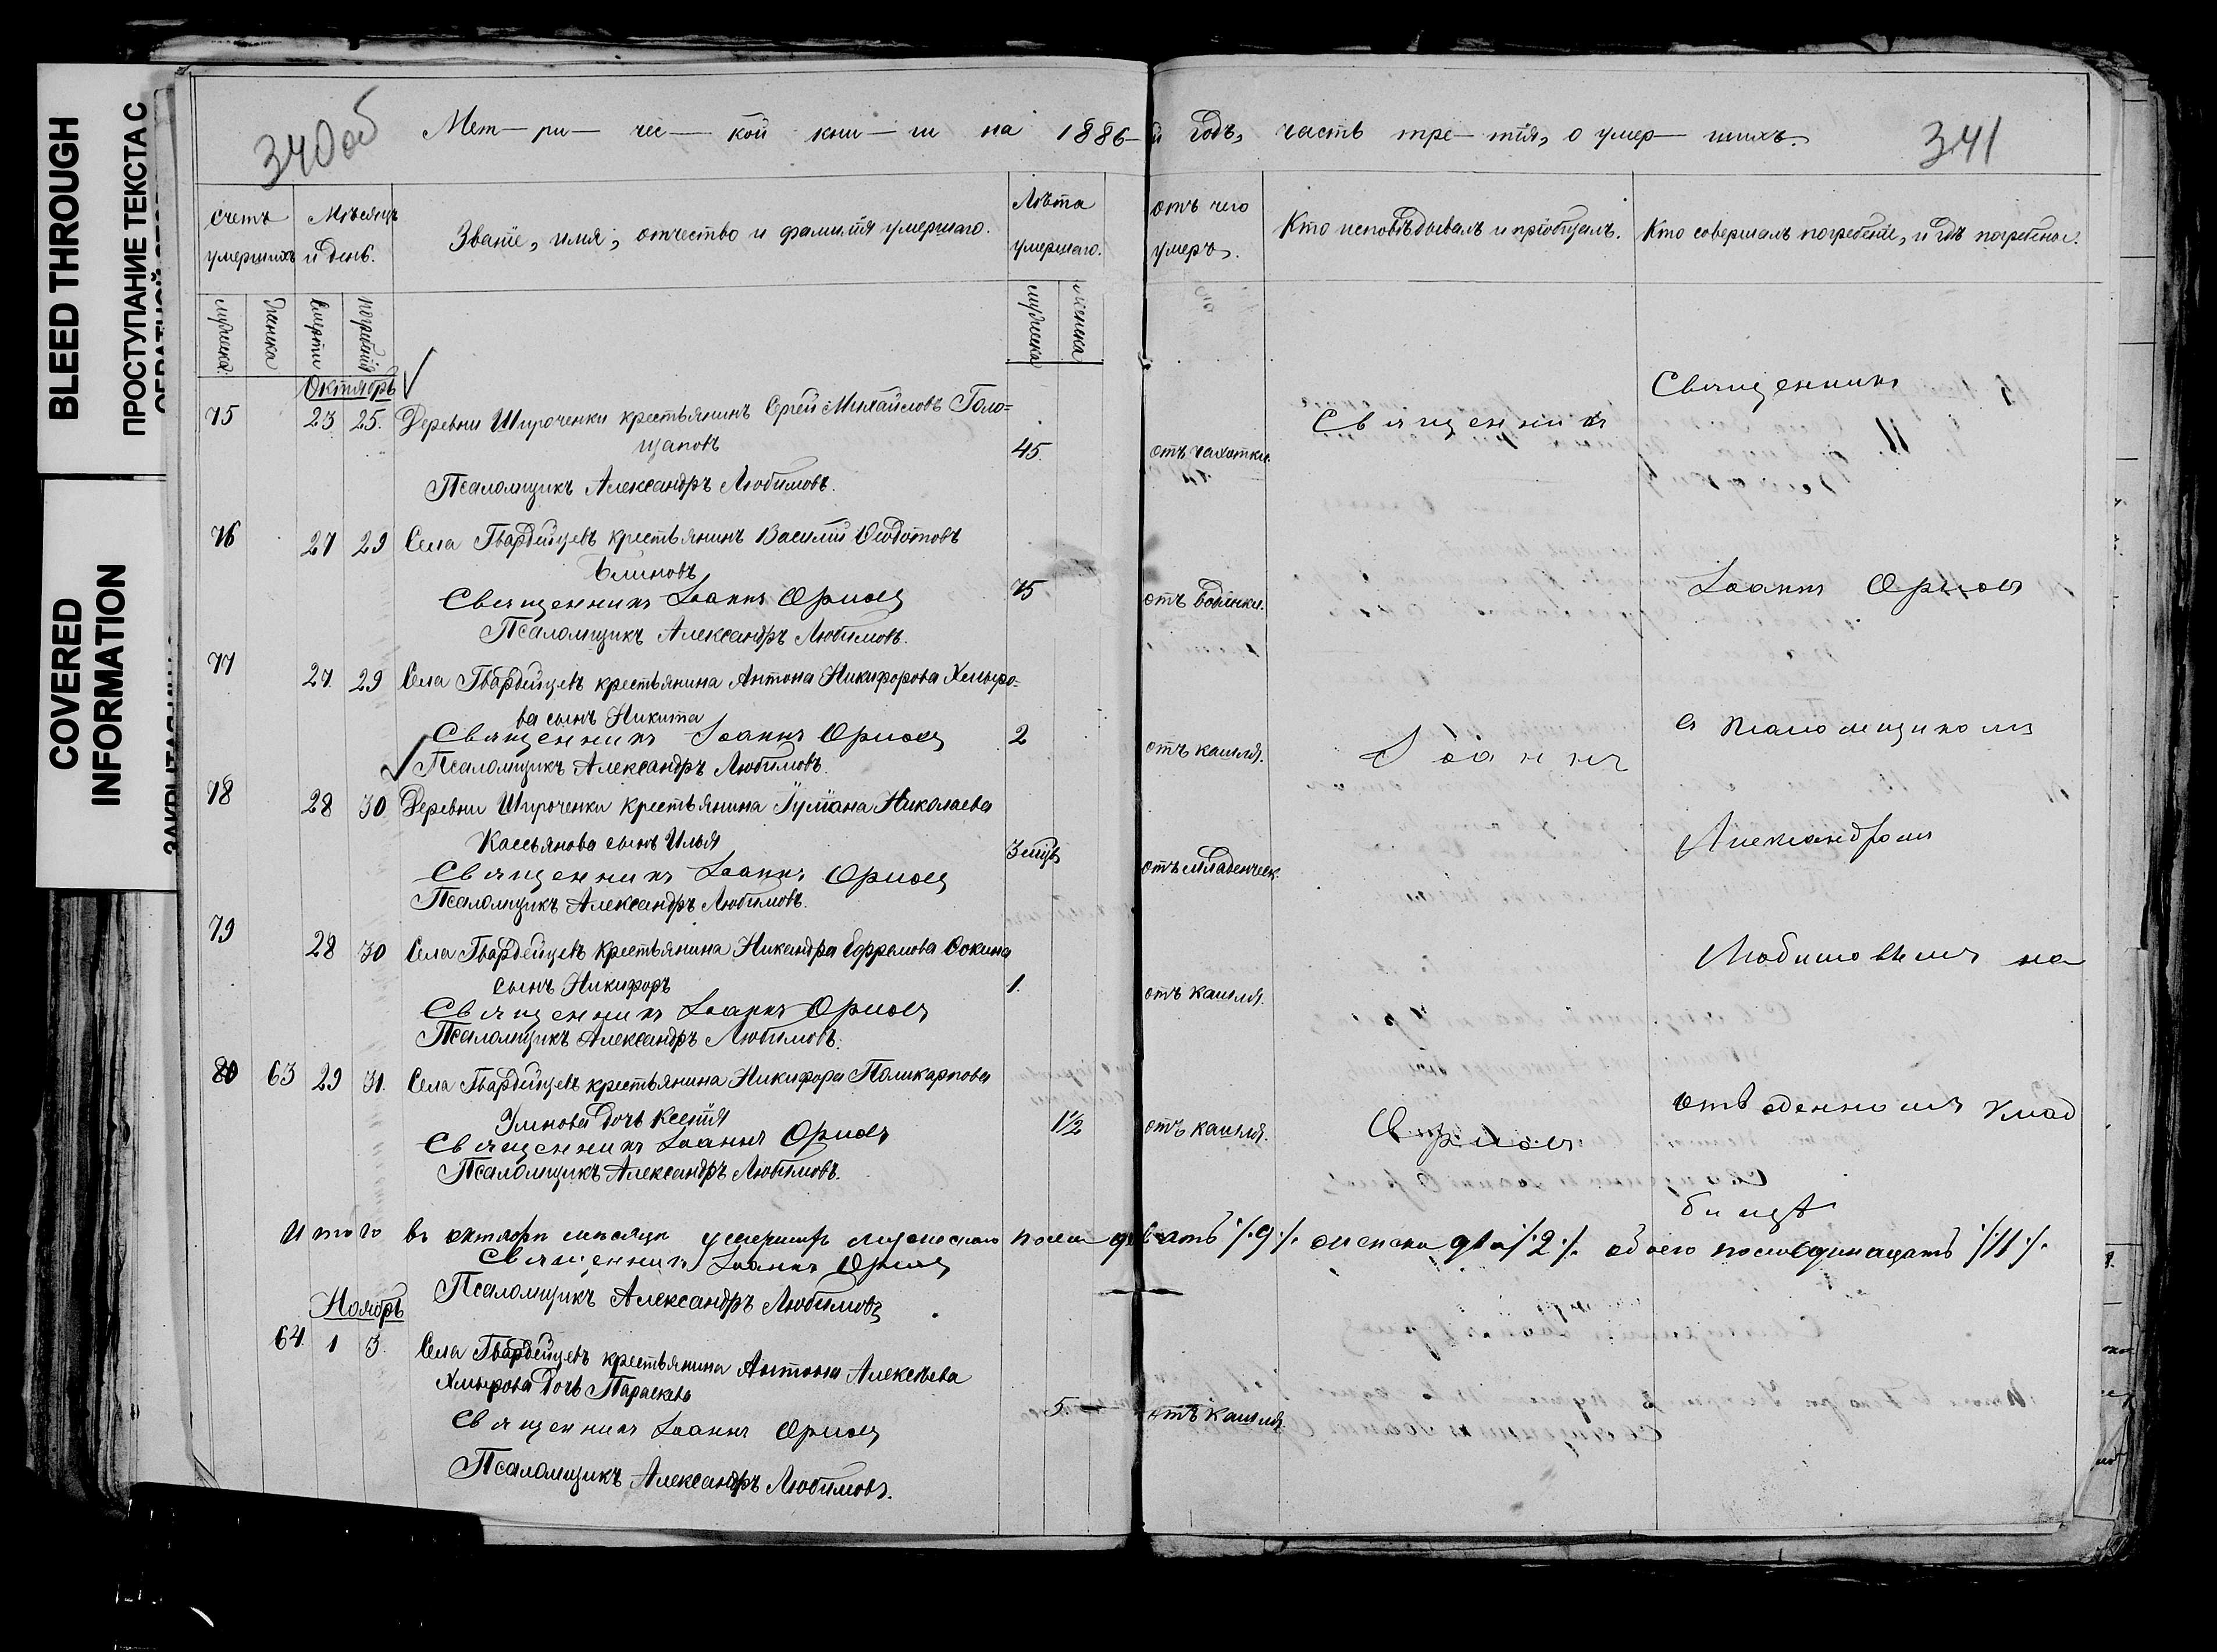 BLEED THROUGH
ПРОСТУПАНИЕ ТЕКСТА С
COVERED
INFORMATION
340об
Мет-ри-чес-кой кни-ги на 1886-й годъ, часть тре-тія, о умер-шихъ.
341
счетъ умершихъ
Мѣсяцъ и день.
Званіе, имя, отчество и фамилія умершаго.
Лѣта умершаго.
отъ чего умеръ.
Кто исповѣдывалъ и пріобщалъ.
Кто совершалъ погребеніе, и гдѣ погребены.
мужеска
женска
смерти
погребенія
мужеска
женска
Октябрь
75 23 25. Деревни Широченки крестьянинъ Сергей Михайловъ Голо=
щаповъ 45. отъ чахотки.
Псаломщикъ Александръ Любимовъ.
76 27 29 Села Гвардейцевъ крестьянинъ Василій Ѳедотовъ
Блиновъ 75 отъ водянки.
Священникъ Іоаннъ Орловъ
Псаломщикъ Александръ Любимовъ.
77 27. 29 Села Гвардейцевъ крестьянина Антона Никифорова Хмыро=
ва сынъ Никита 2 отъ кашля.
Священникъ Іоаннъ Орловъ
Псаломщикъ Александръ Любимовъ.
78 28 30 Деревни Широченки крестьянина Іуліана Николаева
Касьянова сынъ Илья 3 мцъ отъ младенческ.
Священникъ Іоаннъ Орловъ
Псаломщикъ Александръ Любимовъ.
79 28 30 Села Гвардейцевъ крестьянина Никандра Ефремова Фокина
сынъ Никифоръ 1. отъ кашля.
Священникъ Іоаннъ Орловъ
Псаломщикъ Александръ Любимовъ.
80 63 29 31. Села Гвардейцевъ крестьянина Никифора Поликарпова
дочь Ксенія 1½ отъ кашля.
Священникъ Іоаннъ Орловъ
Псаломщикъ Александръ Любимовъ.
Священникъ
Іоаннъ
Орловъ
Священникъ
Іоаннъ Орловъ
съ псаломщикомъ
Александромъ
Любимовымъ на
отведенномъ клад
бищѣ
Итого въ октябрѣ месяцѣ умершихъ мужескаго пола девять /.9./. женска два /.2./. обоего пола одинацать /.11./.
Священникъ Іоаннъ Орловъ
Псаломщикъ Александръ Любимовъ
Ноябрь
64. 1 3. Села Гвардейцевъ крестьянина Антона Алексѣева
Хмырова дочь Параскева 5 отъ кашля.
Священникъ Іоаннъ Орловъ
Псаломщикъ Александръ Любимовъ.